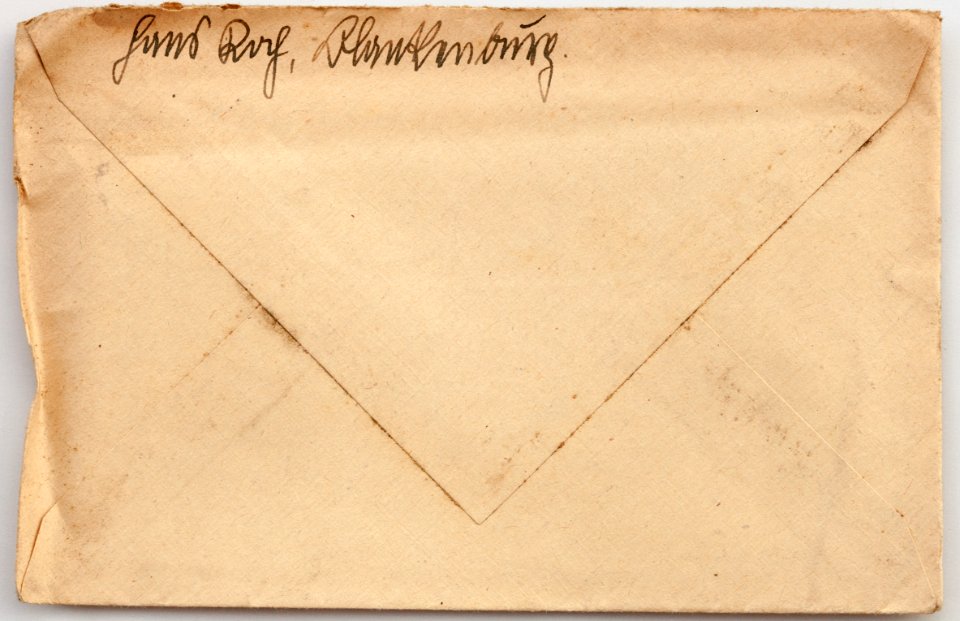 Hans Koch, Blankenburg.